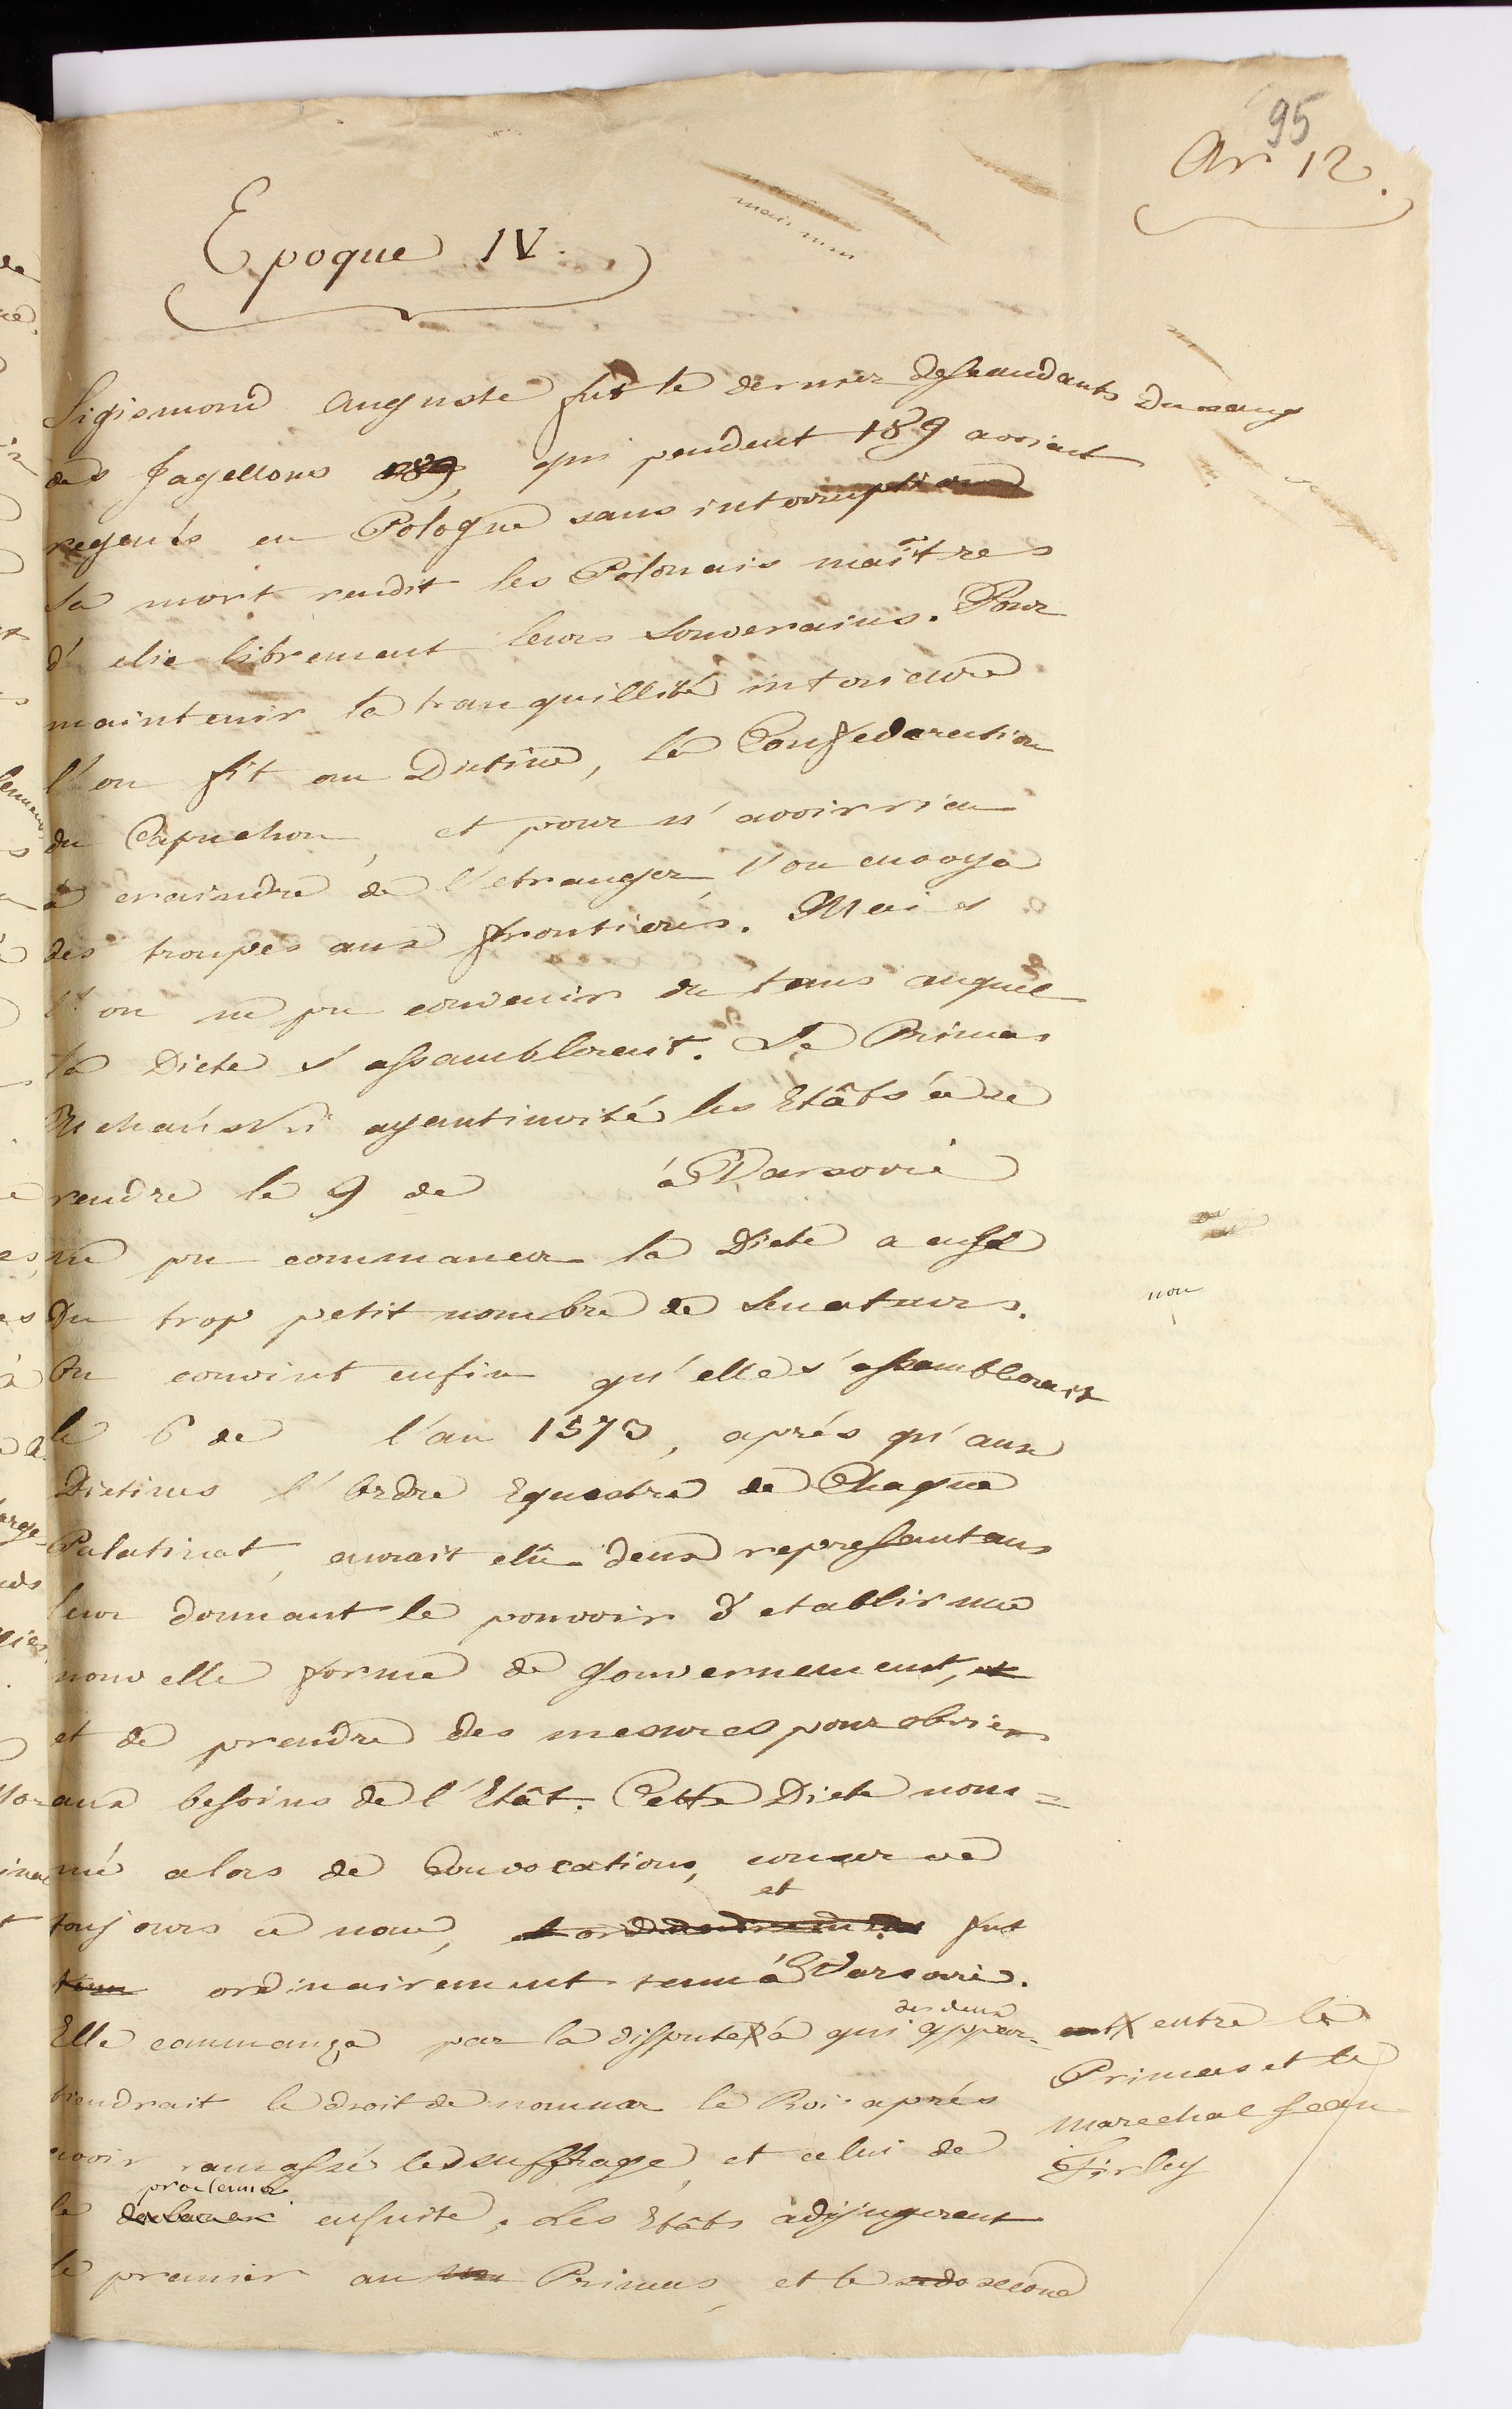 95
Ar 12.
Epoque IV.
Sigismond Auguste fut le dernier desseandants du sang
des Jagellons 189, qui pendent 189 avoient
regents en Pologne sans interruption
sa mort rendit les Polonais maîtres
d'elir librement leurs Souverains. Pour
maintenir la tranquillité interieure
l'on fit au Dietine, la Confederation
du Capuchon, et pour n'avoir rien
à eraindre de l'etranger, l'on envoya
des troupes aux frontieres. Mais
l'on ne pu convenir du tems auquel
la Diete s'assamblerait. Le Primas
Uchański ayant invité les Etâts à se
rendre le 9 de à Varsovie
ne pu commancer la Diete a cause
du trop petit nombre de Senateurs.
non
On convint enfin qu'elle s'assemblerait
le 6 de l'an 1573, aprés qu'aux
Dietines l'Ordre Equestre de Chaque
Palatinat, aurait elû deux represantans
leur donnant le pouvoir d'etablir une
nouvelle forme de Gouvernement, et
et de prendre des mesures pour obvier
aux besoins de l'Etât. Cette Diete nom=
mé alors de Convocations, conserve
toujours ce nom, et fut
tenu ordinairement tenu à Varsovie.
Elle commança par la dispute X à qui des deux appar=
ent X entre le
Primas et le
Marechal Jean
Firley
tiendrait le droit de nommer le Roi aprés
avoir ramassé les suffrage, et celui de
le declarer proclamer ensuite. Les Etâts adjugerent
le premier au Primas, et le second